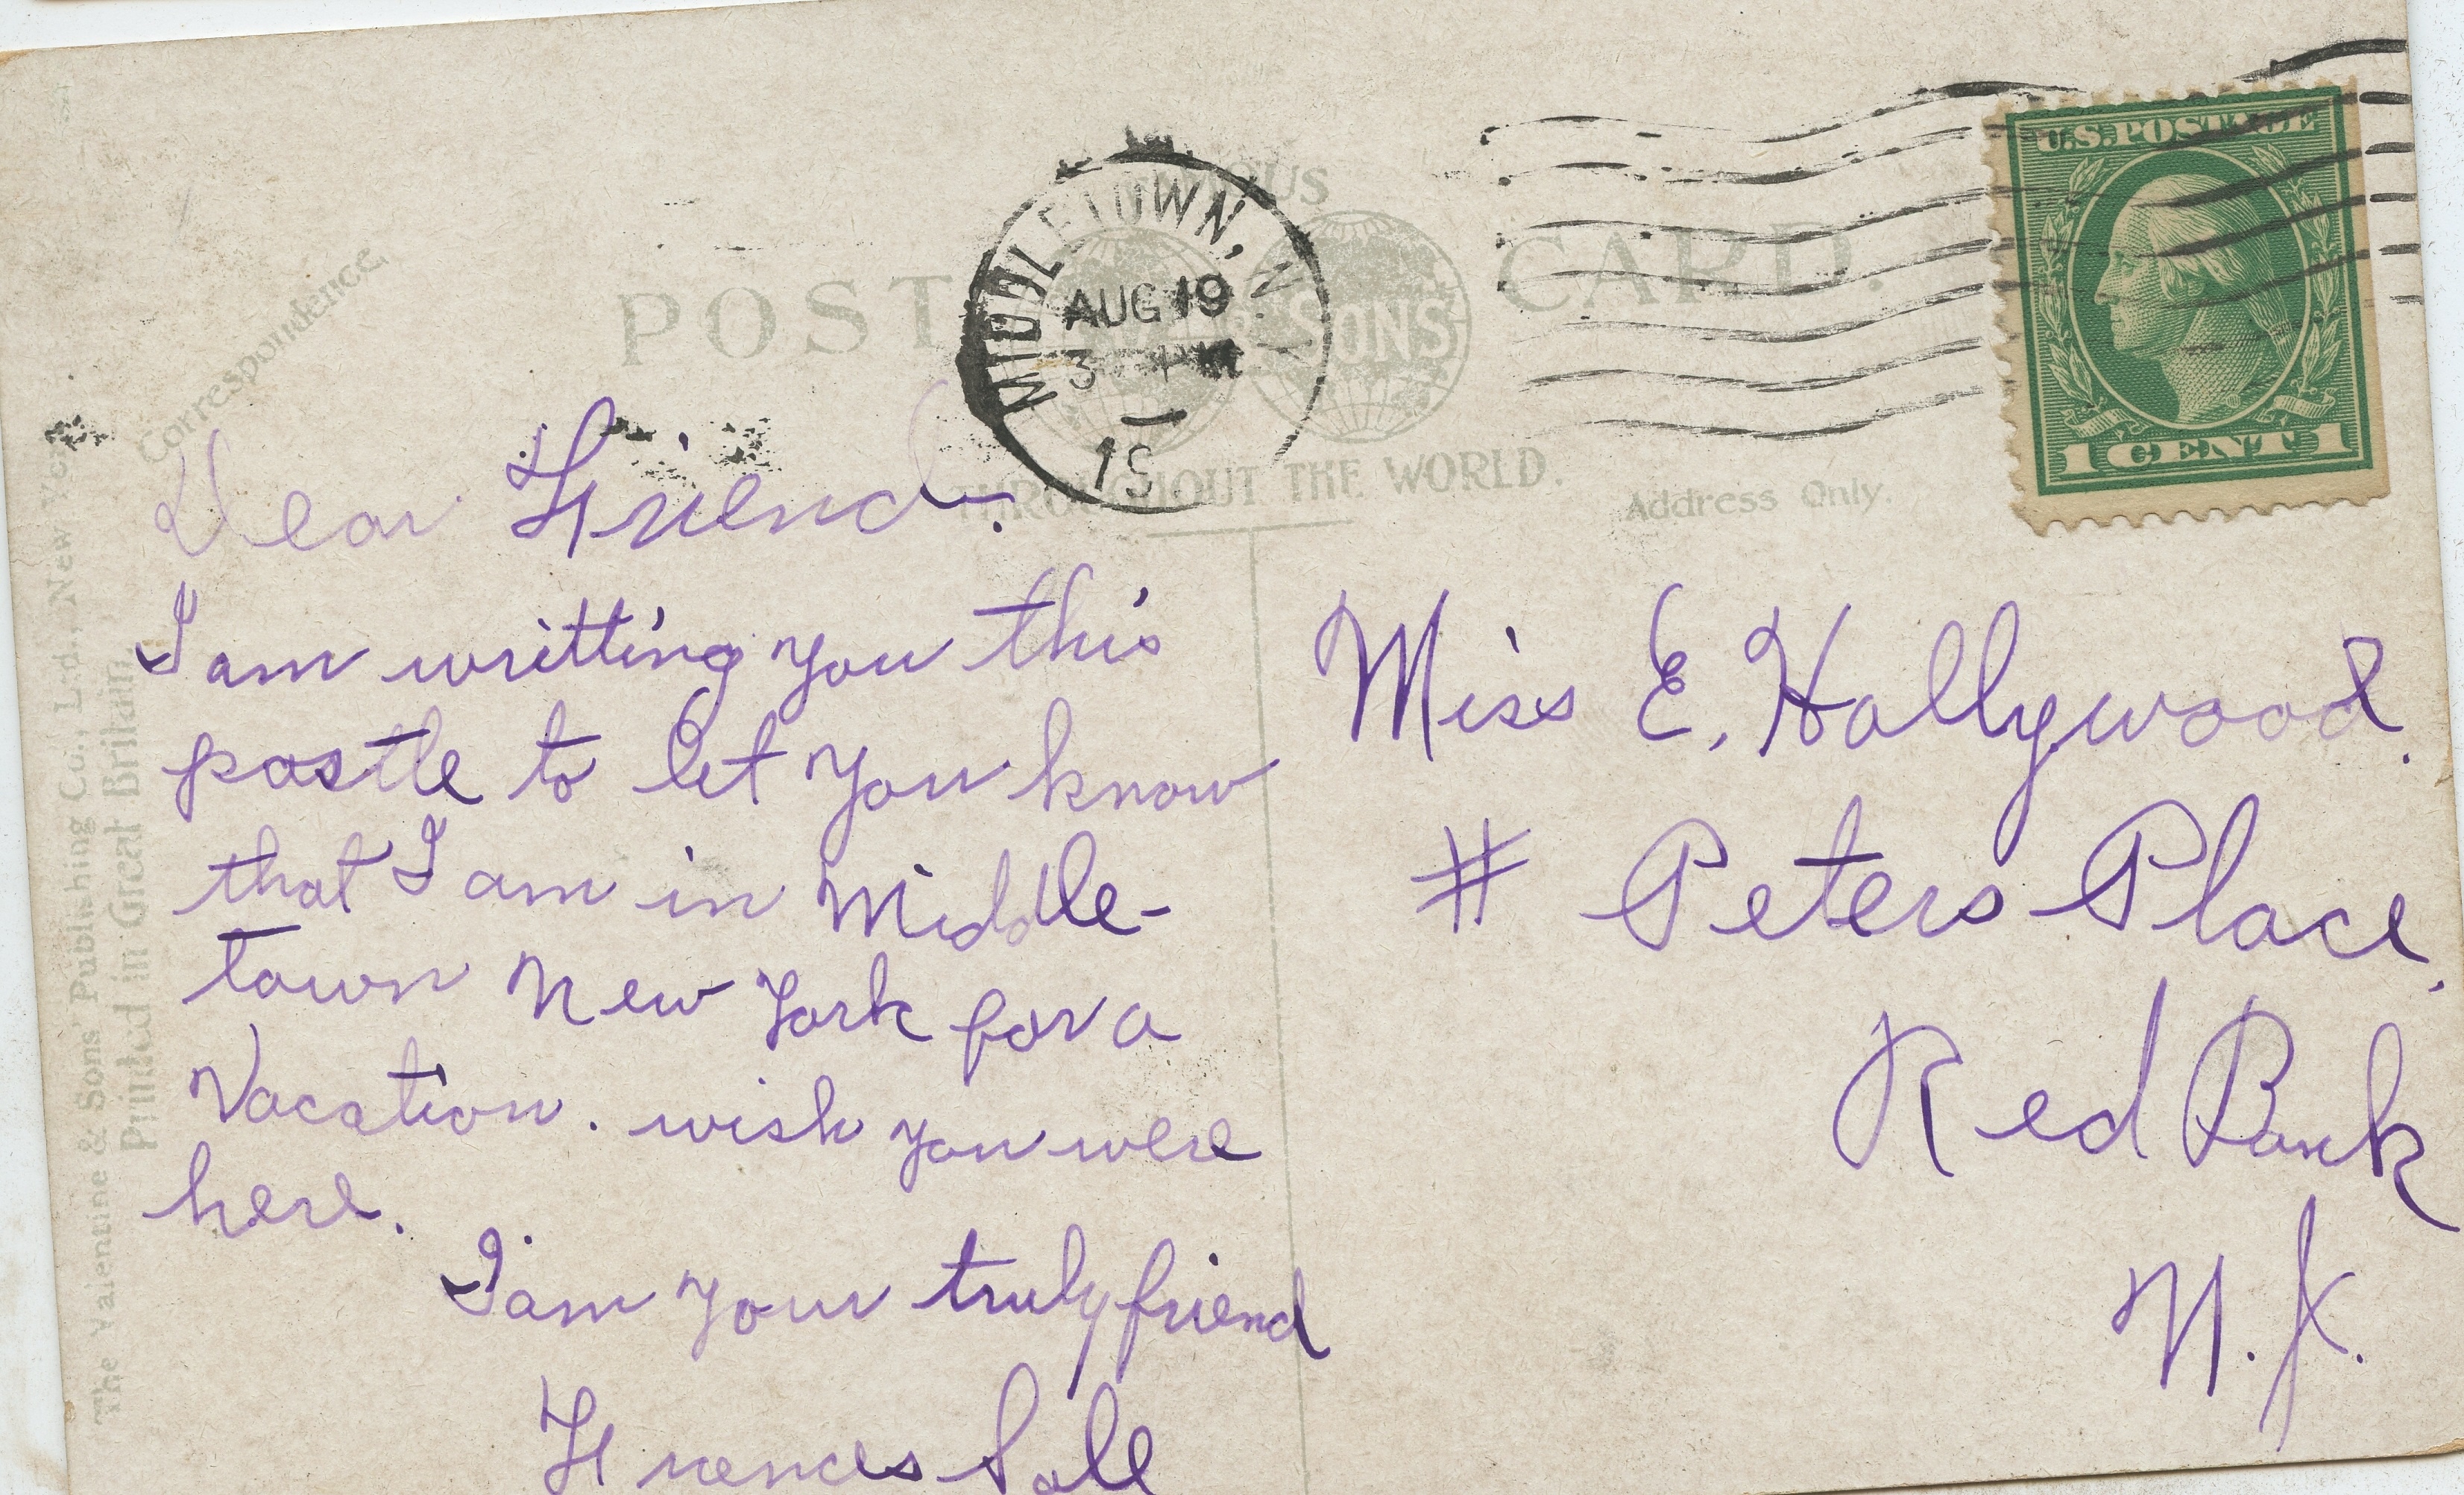 U.S. POSTAGE
1 CENT 1
MIDDLETOWN, N.
AUG 19
3 PM
19
POST CARD.
& SONS
THROUGHOUT THE WORLD.
Correspondence.
Address Only.
The Valentine & Sons' Publishing Co., Ltd., New York
Printed in Great Britain
Dear Friend.
I am writting you this
postle to let you know
that I am in Middle-
town New York for a
Vacation. wish you were
here.
I am your truly friend
Frences Sale
Miss E. Hollywood.
# Peters Place.
Red Bank
N.J.